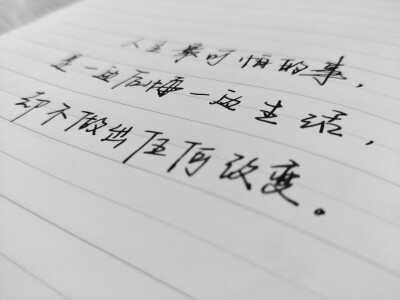 人生最可怕的事，
是一边后悔一边生活，
却不做出任何改变。